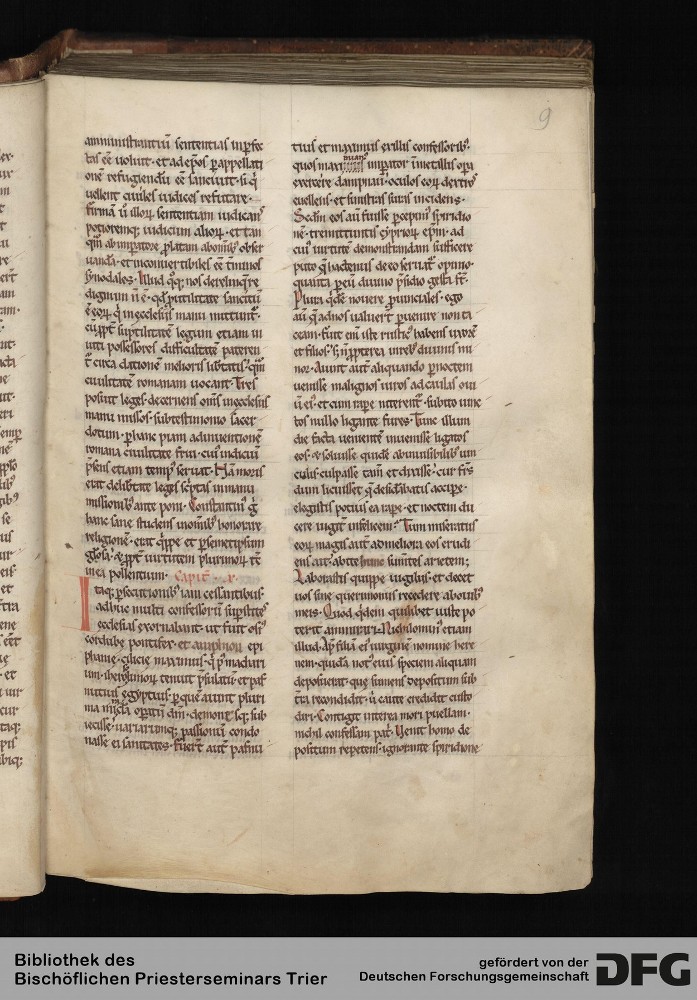 9
amministrantiū sententias inperfec
tas eē uoluit · et ad ep̄os p̄ appellati
onē refugiendū eē sanciuit · si q̇
uellent ciuiles iudices refutare ·
firmā ū illoꝝ sententiam iudicanſ
potioremq; iudicium alioꝝ · et tan
qm̄ ab imperatore ꝓlatam ab omīb;
uandā · et inconuertibiles eē
synodales · Illud q̊q; nos derelinq̄re
dignum n̄ ē ·
ē eoꝝ q̇ in ecclesiis manu mittunt ·
legum etiam in
uiti possessores difficultatē
circa datione melioris
ciuilitatē romanam uocant · Tres
posuit leges · decernens om̄s in ecclesiis
manu missos · sub testimonio sacer
dotum · p̄ hanc piam adinuentionē
romana ciuilitate frui · cui iudiciū
p̄sens etiam temp; seruat · Hā moris
erat de leges sc̄ptas in manu
missionib; ante poni · Constantinꝰ
hanc sane studens in om̄ib; honorare
religionē · erat q̇ppe et p̄ semetipsum
ꝓpt̄ uirtutem plurimoꝝ
mea pollentium · Capit̄ · x ·
Itaq; p̄secutionib; iam cessantibus ·
adhuc multi confessorū
ecclesias exornabant · ut fuit
cordube pontifex · et amphion epi
phanie · cilicie maximus · q̇ p̄ macari
um · iherosolimoꝝ tenuit et paf
nutius egyptius · p̄ quē aiunt pluri
ma mirac̄la operatū dm̄ ·
iecisse · uariarumq; passionū condo
nasse ei sanitates · Fuer̄t aut̄ pafnu
tius et maximus ex illis confessorib; ·
quos maximianꝰ imp̄ator in metallis
exercere dampnauit · oculos eoꝝ
euellens · et sinistras suras incidens ·
Scd̄m eos aū fuisse p̄cepimꝰ spiridio
nē · trimittuntis cyprioꝝ ep̄m · ad
cuiꝰ uirtutē demonstrandam sufficere
puto q̄ hactenus de eo seruat̄ opinio ·
quanta p̄ eū diuino p̄sidio gesta
Plura q̇dē nouere ꝓuinciales · ego
aū q̄ ad nos ualuer̄t p̄uenire non ta
ceam · fuit enim iste rusticꝰ habens uxorē
et filios · in rebꝰ diuinis mi
nor · Aiunt aut̄ aliquando p̄ noctem
uenisse malignos uiros ad caulas oui
ū eiꝰ · et cum rape niterent̄ · subito uinc
tos nullo ligante fures · Tunc illum
die facta uenientē inuenisse ligatos
eos · et soluisse quidē ab inuisibilibꝰ uin
culis · culpasse tam̄ et dixisse · cur
dum licuisset q̄ desid̄abatis accipe ·
elegistis potius ea rape · et noctem du
cere uigil infeliciem · Tum miseratus
eoꝝ magis aut̄ ad meliora eos erudi
ens ait · abite hinc sum̄tes arietem ·
Laborastis quippe uigiliis · et decet
uos sine querimoniis recedere ab ouibꝰ
meis · Quod q̇dem quilibet iuste po
terit ammirari · Nichilominus etiam
illud · Ap̄ filia eiꝰ uirgine nomine here
nem · quidā notꝰ eiꝰ speciem aliquam
deposuerat · que sumens depositum sub
t̄ra recondidit · ū caute credidit custo
diri · Contigit interea mori puellam ·
nichil confessam pat̄ · Uenit homo de
positum repetens · ignorante spiridione
Bibliothek des
Bischöflichen Priesterseminars Trier
gefördert von der
Deutschen Forschungsgemeinschaft
DFG